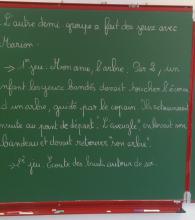 L'autre demi groupe a fait des jeux avec
Marion :
→ 1er jeu : Mon ami, l'arbre. Par 2, un
enfant les yeux bandés devait toucher l'écorce
d'un arbre, guidé par le copain. Ils retournaient
ensuite au point de départ. "L'aveugle" enlevait son
bandeau et devait retrouver son arbre.
→ 2e jeu : Ecoute des bruits autour de soi.